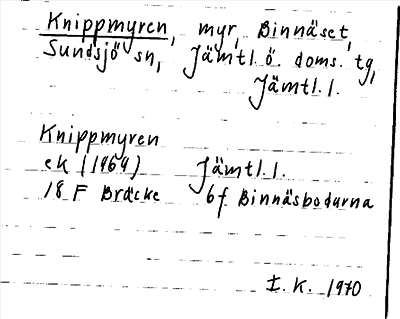 Knippmyren, myr, Binnäset,
Sundsjö sn, Jämtl. ö. doms. tg,
Jämtl. l.
Knippmyren
ek (1964) Jämtl. l.
18 F Bräcke 6f Binnäsbodarna
I. K. 1970